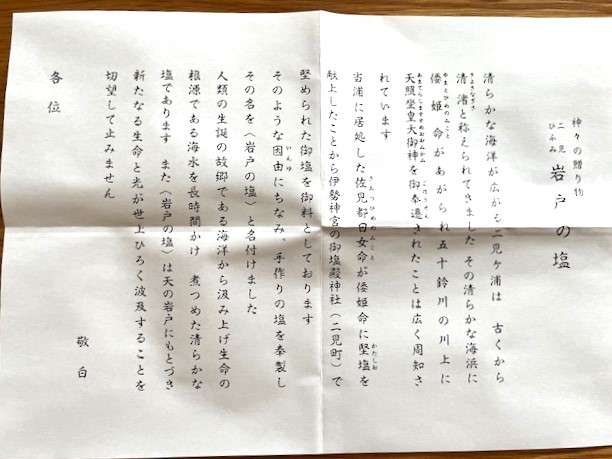 神々の贈り物
二見 岩戸の塩
ひふみ
清らかな海洋が広がる二見ヶ浦は 古くから
清渚と称えられてきました その清らかな海浜に
きよきなぎさ
倭姫命があがられ五十鈴川の川上に
やまとひめのみこと
天照坐皇大御神を御奉遷されたことは広く周知さ
あまてらしますすめおおみかみ ごほうせん
れています
当浦に居処した佐見都日女命が倭姫命に堅塩を
さみつひめのみこと かたしお
献上したことから伊勢神宮の御塩殿神社（二見町）で
堅められた御塩を御料としております
そのような因由にちなみ、手作りの塩を奉製し
いんゆ
その名を〈岩戸の塩〉と名付けました
人類の生誕の故郷である海洋から汲み上げ生命の
根源である海水を長時間かけ 煮つめた清らかな
塩であります また〈岩戸の塩〉は天の岩戸にもとづき
新たなる生命と光が世上ひろく波及することを
切望して止みません
敬白
各位